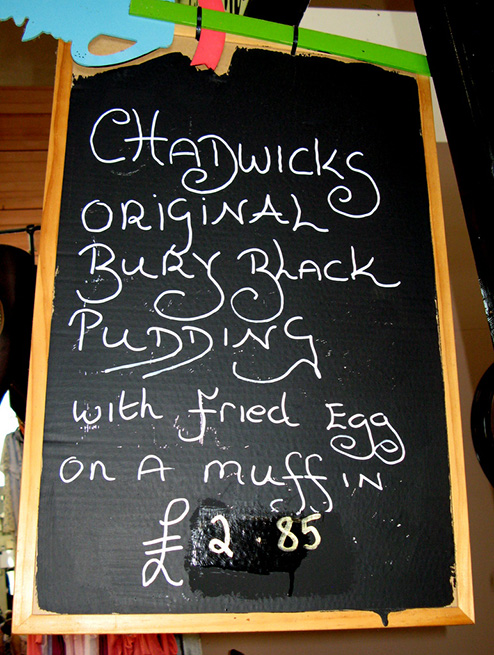 CHADWICKS
ORIGINAL
BURY BLACK
PUDDING
with fried Egg
on A muffIN
£2.85